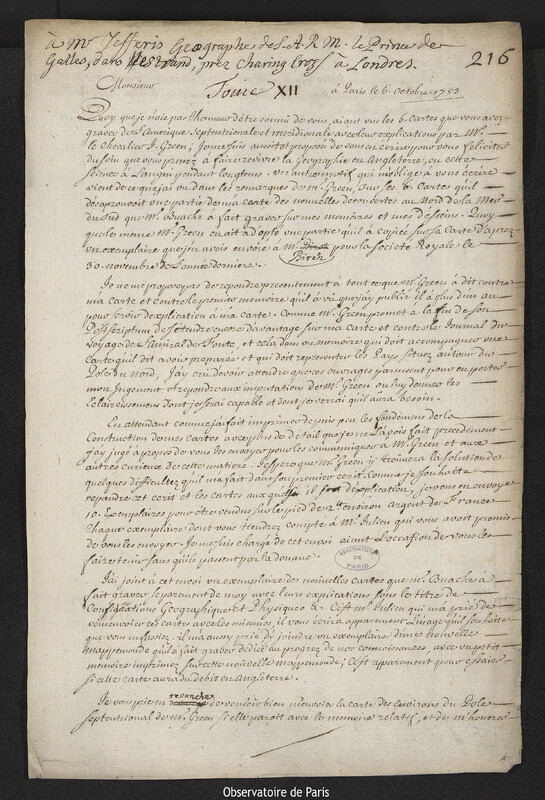 à Mr. Jefferis Geographe de S. A. R. M. le Prince de
Galles, dans Westrand, prez Charing Cross à Londres. 216
Monsieur Tome XII à Paris le 6. octobre 1753
Quoy que je n'aie pas l'honneur d'être connû de vous, aiant vû les 6. Cartes que vous avez
gravées de l'Amerique Septentrionale et meridionale avec leur explications par Mr.
le Chevalier J. Green; je me suis aussitot proposé de vous en écrire pour vous feliciter
du soin que vous prenez à faire revivre la Geographie en Angleterre, où cette
science a langui pendant longtems. un autre motif qui m'oblige à vous écrire
vient de ce que j'ai vû dans les remarques de Mr. Green, sur ses 6. Cartes qu'il
désaprouvoit une partie de ma carte des nouvelles decouvertes au Nord de la Mer
du Sud que Mr. Buache a fait graver sur mes memoires et mes desseins. Quoy
que le meme Mr. Green en ait adopté une partie qu'il a copiée sur la Carte d'aprez
un exemplaire que j'en avois envoié à Mr. Birch pour la Societé Royale le
30. novembre de l'année derniere.
Je ne me propose pas de repondre presentement à tout ce que Mr. Green a dit contre
ma carte et contre le premier memoire qu'il a vû que j'ay publié il a plus d'un an
pour servir d'explication à ma carte. Comme Mr. Green promet à la fin de son
Postscriptum de s'étendre encore davantage sur ma Carte et contre le Journal du
voyage de l'Amiral de Fonte, et cela dans un memoire qui doit accompagner une
Carte qu'il dit avoir preparée et qui doit representer les Pays situez autour du
Pole du Nord, j'ay crû devoir attendre que ces ouvrages parussent pour en porter
mon jugement et repondre aux imputations de Mr. Green ou luy donner les
Eclaircissemens dont je serai capable et dont je verrai qu'il aura besoin.
En attendant comme j'ai fait imprimer depuis peu les fondemens de la
Construction de mes cartes avec plus de détail que je ne l'avois fait precedemment
j'ay jugé à propos de vous les envoyer pour les communiquer à Mr. Green et aux
autres curieux de cette matiere. J'espere que Mr. Green y trouvera la solution de
quelques difficultez qu'il m'a fait dans son premier ecrit. Comme je souhaitte
repandre cet ecrit et les cartes auxquels il sert d'explication, je vous en envoye
10. Exemplaires pour être vendus sur le pied de environ argent de France
Chaque exemplaire dont vous tiendrez compte à Mr. Julien qui vous avoit promis
de vous les envoyer. Je me suis chargé de cet envoi aiant l'occasion de vous les
faire tenir sans qu'ils passent par la douane.
J'ai joint à cet envoi un exemplaire des nouvelles cartes que Mr. Buache a
fait graver separement de moy avec leurs explications sous le titre de
Considerations Geographiques et Physiques &. C'est Mr. Julien qui m'a prié de
vous envoier ces cartes avec les miennes, il vous écrira apparemment l'usage qu'il souhaitte
que vous en fassiez. il m'a aussy prié d'y joindre un exemplaire d'une nouvelle
mappemonde qu'il a fait graver dediée au progrez de nos connoissances, avec un petit
memoire imprimé sur cette nouvelle mappemonde; C'est apparemment pour essaier
si elle carte aura du debit en Angleterre.
Je vous prie en revanche de vouloir bien m'envoier la carte des environs du Pole
septentrional de Mr. Green si elle paroit avec le memoire relatif, et de m'honorer
OBSERVATOIRE DE PARIS
Observatoire de Paris